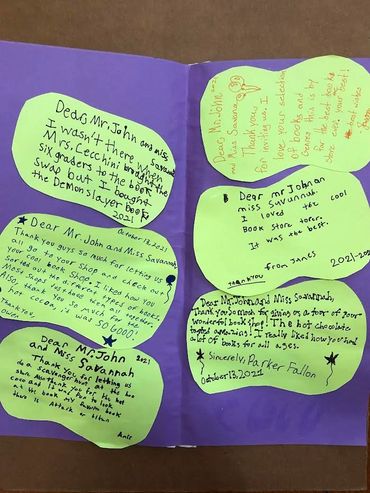 Dear, Mr. John and miss savannah
I wasn't there when
Mrs. Cecchini brought the
six graders to the book
swap but I bought
the Demon slayer book
2021
Dear Mr. John and Miss Savannah,
October 13, 2021
Thank you guys so much for letting us
all go to your shop and check out
your cool book shop. I liked how you
sorted out the different types of books.
Most shops have
Also, thank you so much for the
hot cocoa, it was SO GOOD!
Thank you,
Owen
Dear Mr. John
and Miss Savannah
2021
Thank you, for letting us
do a scavenger hunt at the
store. Thank you for the hot
coco and letting us to look
at the book my favorite book
there is
Dear, Mr. John
and Miss Savana
2021
Thank you
for letting us I
love your selection
of books and
this is by
far the best book
store ever, your the best!
best wishes
Dear mr John an
miss Savannah
I loved the cool
Book store
It was the best.
thank you
from James
2021-2022
Dear Mr. John and Miss Savannah,
Thank you so much for giving us a tour of your
wonderful book shop! The hot chocolate
tasted amazing! I really liked how you had
a lot of books for all ages.
Sincerely, Parker Fallon
October 13, 2021